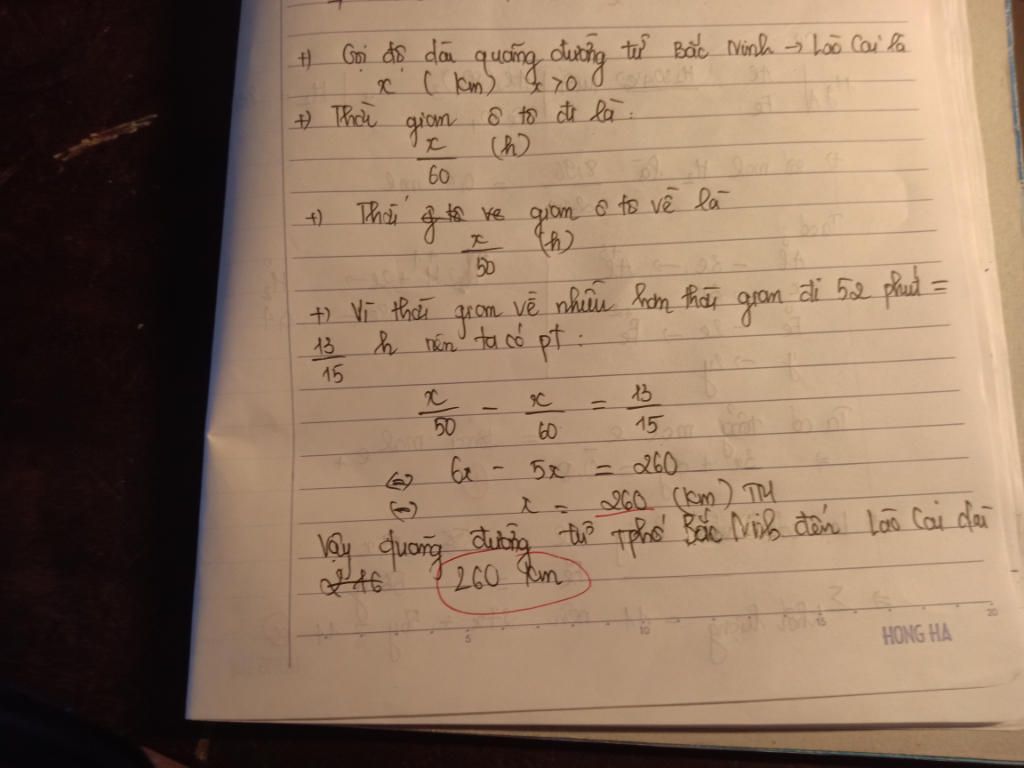 +) Gọi độ dài quãng đường từ Bắc Ninh → Lào Cai là
x (km) x > 0
+) Thời gian ô tô đi là:
x/60 (h)
+) Thời gian ô tô về là
x/50 (h)
+) Vì thời gian về nhiều hơn thời gian đi 52 phút =
13/15 h nên ta có pt:
x/50 - x/60 = 13/15
⇔ 6x - 5x = 260
⇔ x = 260 (km) TM
Vậy quãng đường từ Tphố Bắc Ninh đến Lào Cai dài
260 km
5 10 15 20
HONG HA